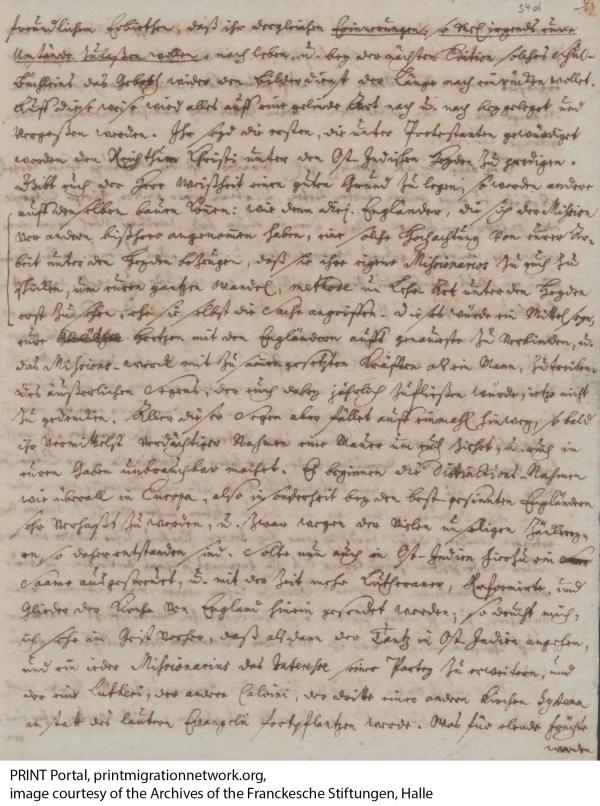 34d
freundlichen Erbiethen, daß ihr dergleichen Erinnerungen, so viel irgends eure
Umstände zulaßen wollen, nach leben, u. bey der nächsten Edition solches
büchleins das Geboth wider den bilderdienst der Länge nach einrücken wollet.
Auff diese weise wird alles auff eine gelinde Art nach u. nach beygeleget, und
vergeßen werden. Ihr seyd die ersten, die unter Protestanten gewürdiget
worden den Reichthum Christi unter den Ost-Indischen Heyden zu predigen.
Gibt euch der Herr Weißheit einen guten Grund zu legen, so werden andere
auff denselben bauen können: wie denn diej. Engländer, die sich der Mission
vor andern bißhero angenommen haben, eine solche Hochachtung von eurer Ar-
beit unter den Heyden bezeugen, daß sie ihre eigene Missionarios zu euch zu
schicken, um euren gantzen wandel, methode und Lehr-Art unter den Heyden
erst zu sehen, ehe sie selbst die Sache angreiffen. Dieses würde ein Mittel seyn,
eure Hertzen mit den Engländern auffs genaueste zu verbinden, u.
das Missions-werck mit zusammengesetzten Kräfften als ein Mann, zu treiben
des äußerlichen Segens, der euch dabey jährlich zufließen würde, ietzo nicht
zu gedencken. Aller dieser Segen aber fället auff einmahl hinweg, so bald
ihr vermittelst verdächtiger Nahmen eine Mauer um euch ziehet, u. euch in
euren Gaben unbrauchbar machet. Es beginnen die Distinctions-Nahmen
wie überall in Europa, also insonderheit bey den best-gesinnten Engländern
sehr verhaßt zu werden, u. zwar wegen der vielen unseligen
en, so daher entstanden sind. Solte nun auch in Ost-Indien hierzu ein
Saame ausgestreuet, u. mit der Zeit mehr Lutheraner, Reformirte, und
Glieder der Kirche von England hinein gesendet werden; so deucht mich,
ich sehe im Geist vorher, daß alsdann der Tantz in Ost-Indien angehen,
und ein ieder Missionarius das Interesse seiner Partey zu erweitern, und
der eine Lutheri, der andere Calvini, der dritte eines andern Kirchen System
an statt des lautern Evangelii fortpflantzen werde. Was für elende früchte
werden
PRINT Portal, printmigrationnetwork.org,
image courtesy of the Archives of the Franckesche Stiftungen, Halle